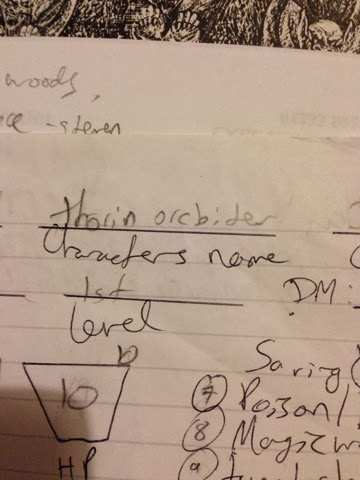 woods,
-steven
thorin orcbider
Characters name
1st
level
DM:
10
HP
Saving
7 Poison /
8 Magic w
9